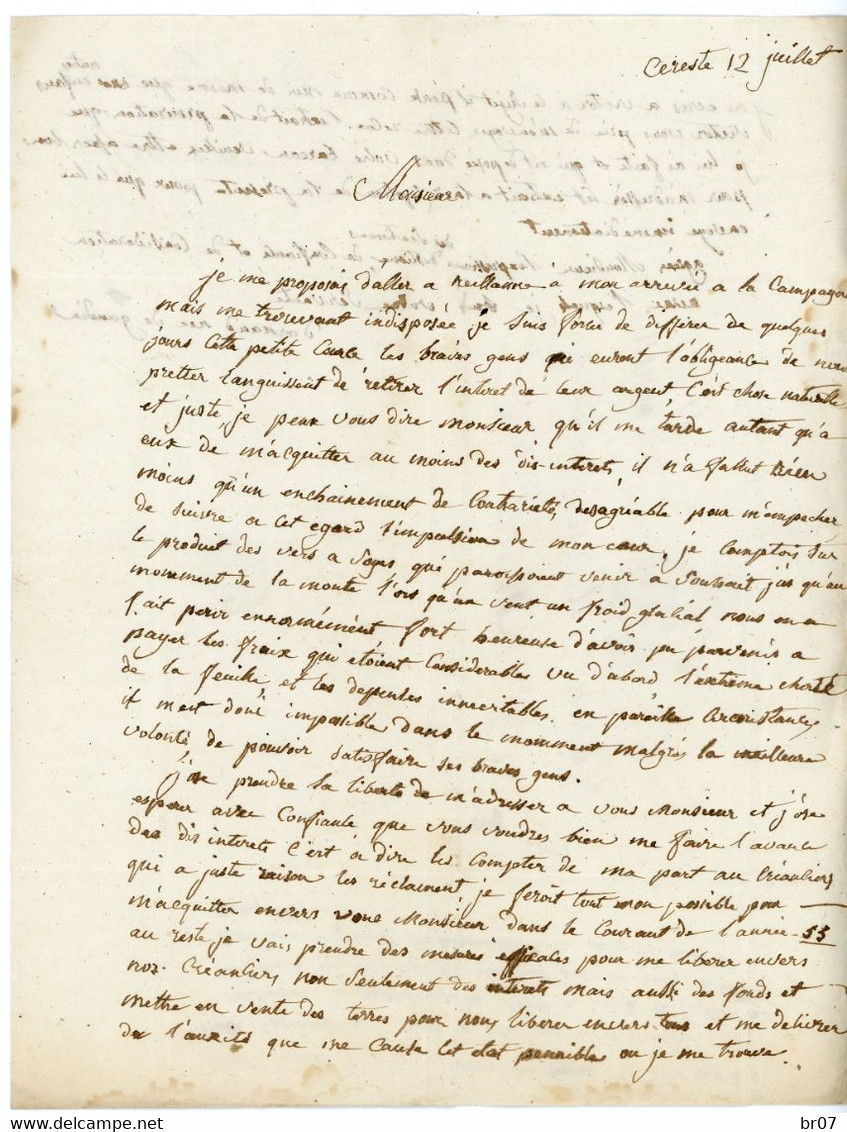 Cereste 12 juillet
Monsieur
je me proposois d'aller a reillanne a mon arrivée a la Campagne
mais me trouvant indisposée je suis forcée de differer de quelques
jours Cette petite Course les braves gens qui eurent l'obligeance de nous
pretter languissent de retirer l'interet de leur argent, C'est chose naturelle
et juste, je peux vous dire monsieur qu'il me tarde autant qu'a
eux de m'acquitter au moins des dis-interets, il n'a fallut rien
moins qu'un enchainement de Contrarietés, desagréable pour m'empecher
de suivre a cet egard l'impulsion de mon cœur, je Comptois sur
le produit des vers a soyes qui paroissoient venir a souhait jus qu'au
monment de la monte l'ors qu'un vent un froid glacial nous en a
fait perir ennormément fort heureuse d'avoir pu parvenir a
payer les fraix qui étoient Considerables vu d'abord l'extreme cherté
de la feuille et les depenses innevitables en pareille Circonstances
il m'est donc impossible dans le momment malgrés la meilleure
volonté de pouvoir satisfaire ses braves gens.
j'ose prendre la liberté de m'adresser a vous Monsieur et j'ose
esperer avec Confiance que vous voudres bien me faire l'avance
des dis interets C'est a dire les Compter de ma part au Créanciers
qui a juste raison les réclament je feroit tout mon possible pour
m'acquitter envers vous Monsieur dans le Courant de l'année 55
au reste je vais prendre des mesures efficales pour me liberer envers
noz. Créanliers non seulement des interets mais aussi des fonds et
mettre en vente des terres pour nous liberer envers tous et me delivrer
de l'anxité que me cause cet etat pennible ou je me trouve.
delcampe.net
br07